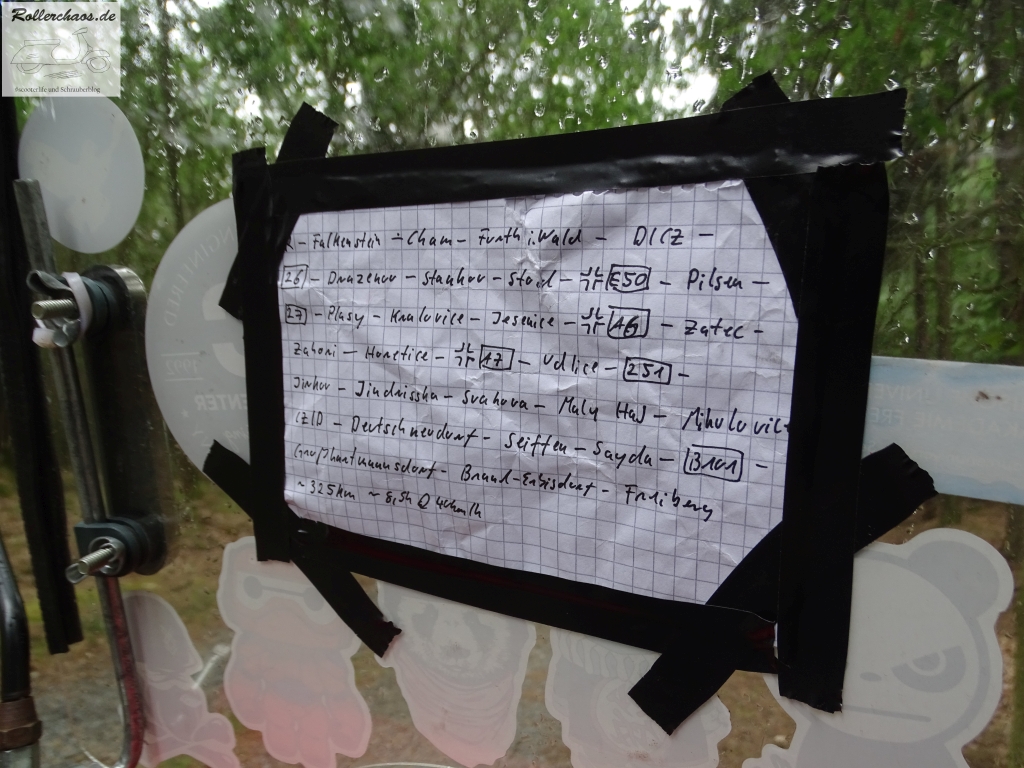 Rollerchaos.de
#scooterlife und Schrauberblog
R - Falkenstein - Cham - Furth i. Wald - D/CZ -
26 - Draženov - Stankov - Stod - E50 - Pilsen -
27 - Plasy - Kralovice - Jesenice - 16 - Zatec -
Zahori - Horetice - 17 - Udlice - 251 -
Jirkov - Jindrisska - Svahova - Maly Haj - Mikulovic
CZ/D - Deutschneudorf - Seiffen - Sayda - B101 -
Großhartmannsdorf - Brand-Erbisdorf - Freiberg
~ 325km ~ 8,5h @ 40km/h
1992